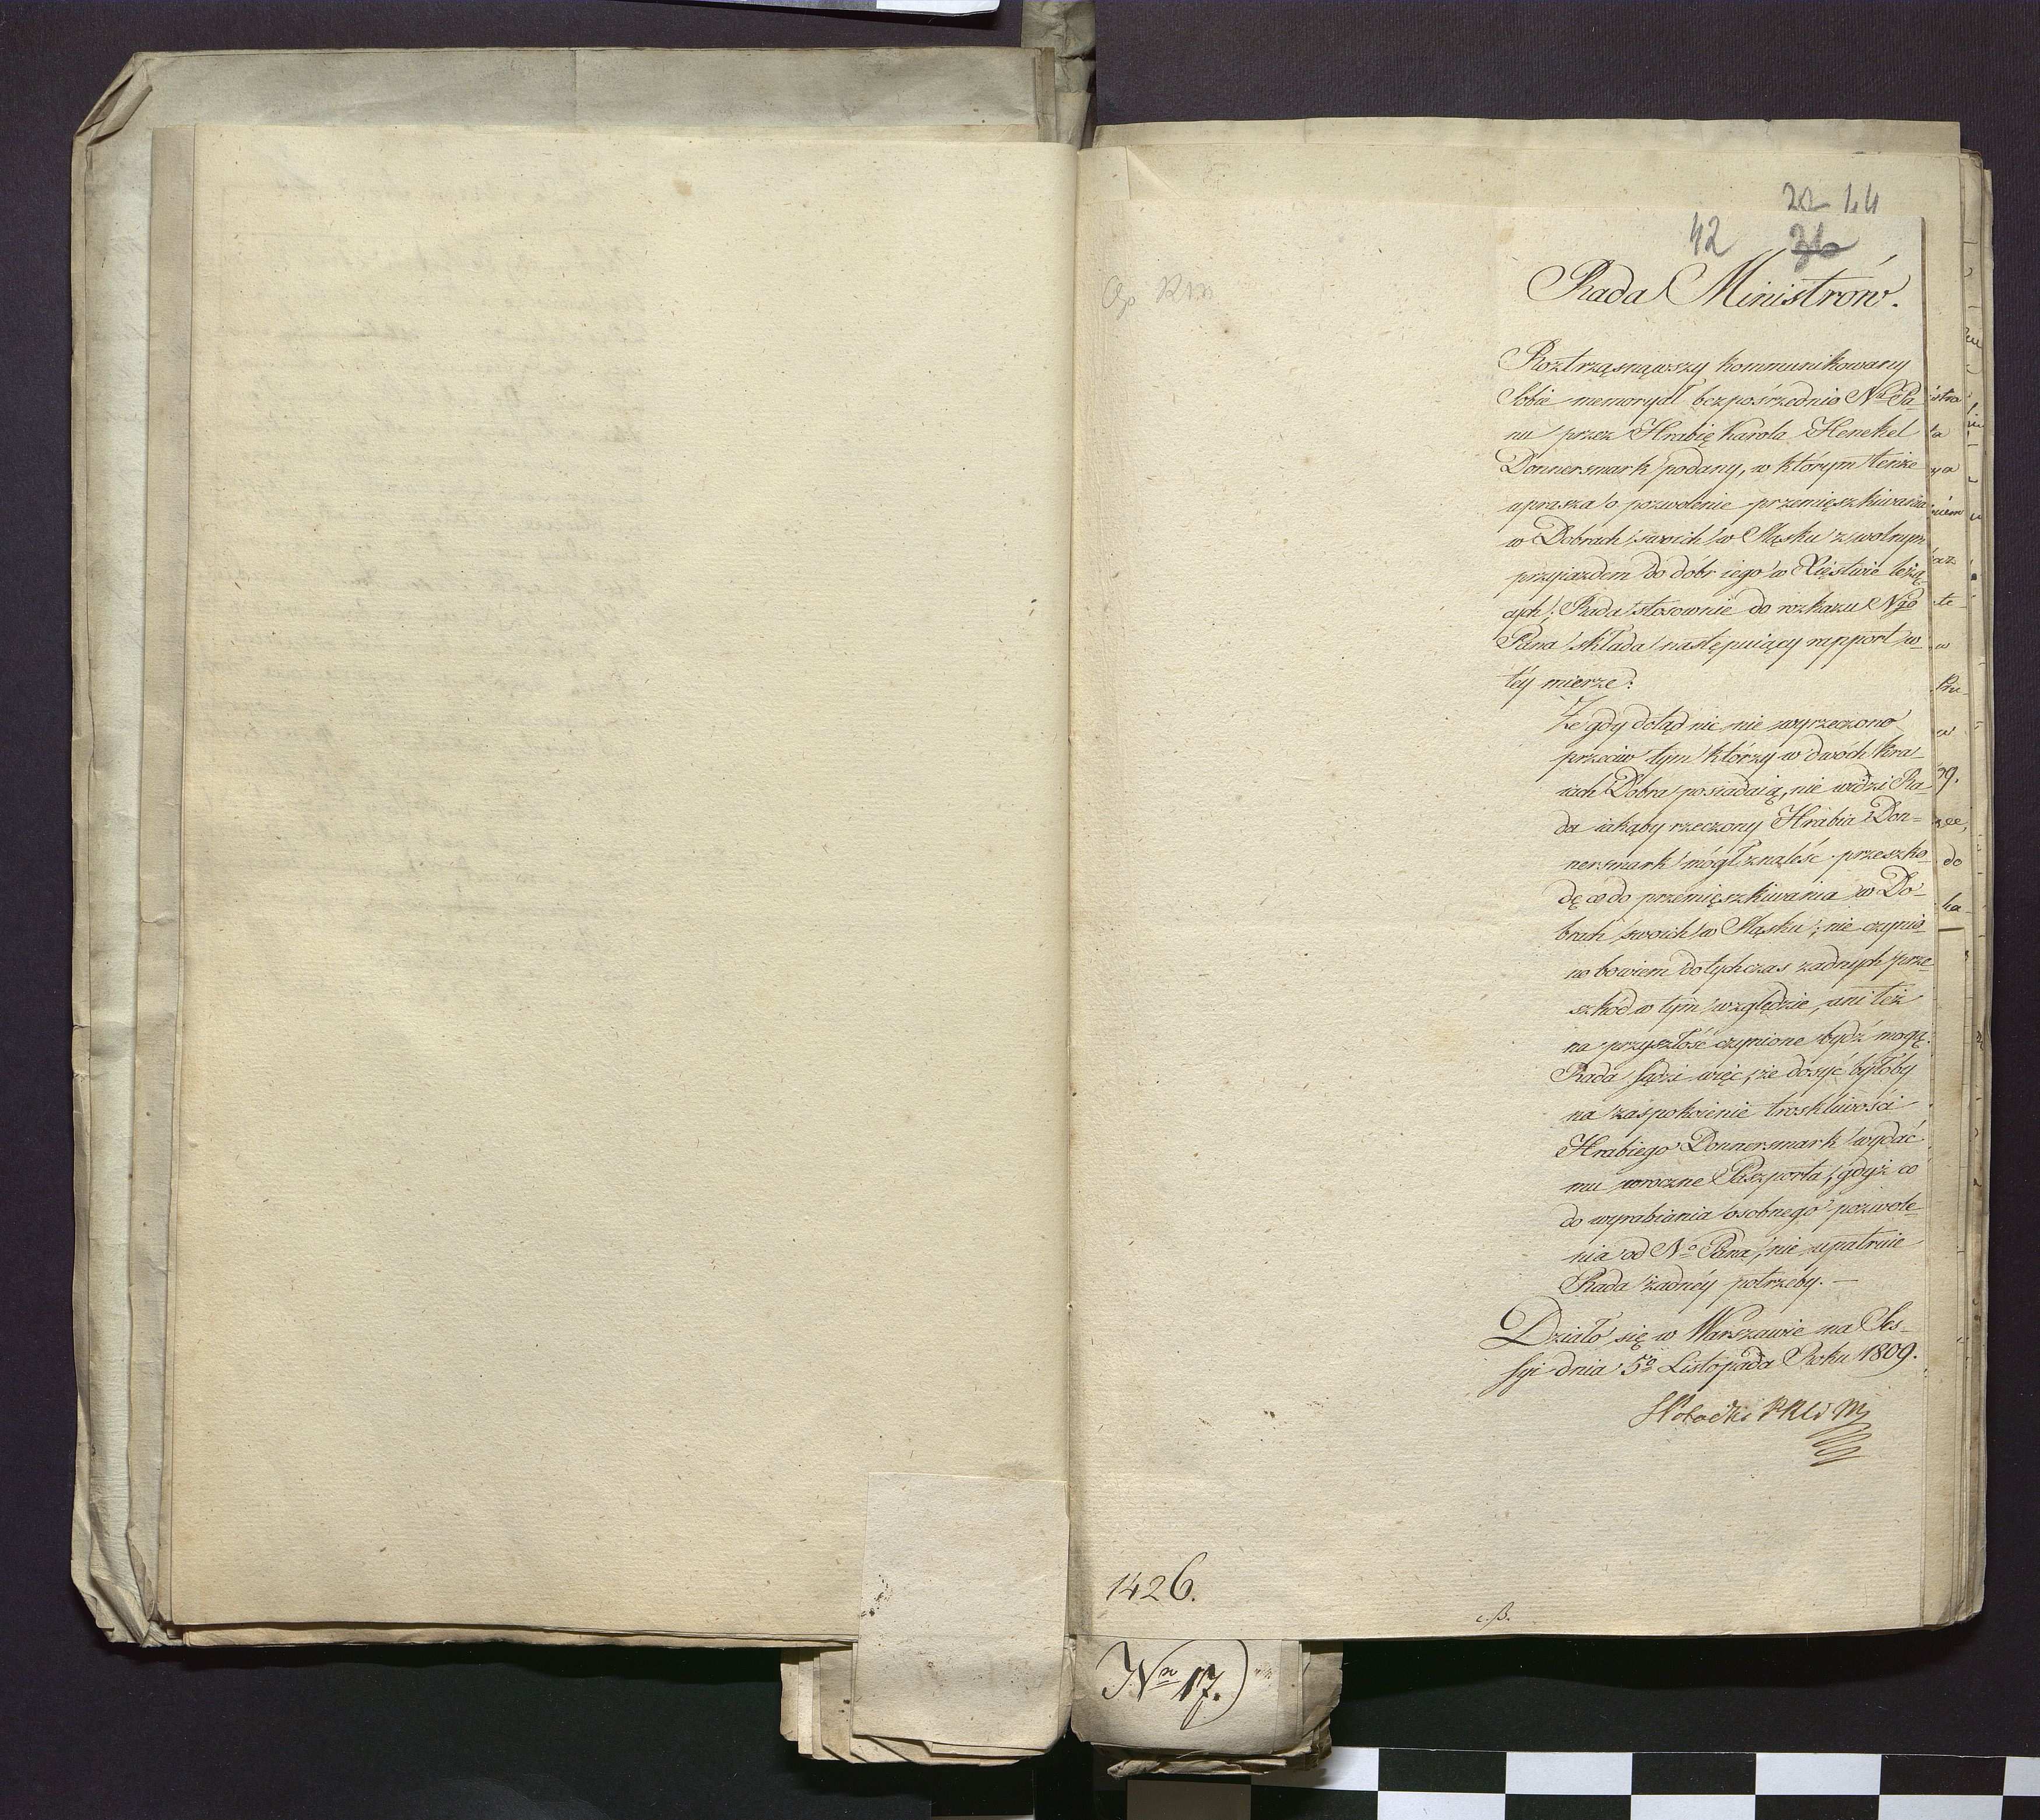 22 44
42 36
Rada Ministrów.
Roztrząsnąwszy kommunikowany
Sobie memoryał bezpośrzednio Nu Pa-
nu przez Hrabię Karola Henckel
Donnersmark podany, w którym tenże
uprasza o pozwolenie przemięszkiwania
w Dobrach swoich w Sląsku z wolnym
przyiazdem do dóbr iego w Xięstwie leżą-
cych; Rada stosownie do rozkazu Ngo
Pana składa następuiący rapport w
téy mierze:
Że gdy dotąd nic nie wyrzeczono
przeciw tym którzy w dwóch kra-
iach Dobra posiadaią, nie widzi Ra-
da iakąby rzeczony Hrabia Don=
nersmark mógł znaleść przeszko-
dę co do przemięszkiwania w Do-
brach swoich w Sląsku; nie czynio-
no bowiem dotychczas zadnych prze-
szkód w tym względzie, ani też
na przyszłość czynione bydź mogą.
Rada sądzi więc, że dosyć byłoby
na zaspokoienie troskliwości
Hrabiego Donnersmark wydać
mu roczne Paszporta, gdyż co
do wyrabiania osobnego pozwole-
nia od No Pana, nie upatruie
Rada żadnéy potrzeby. —
Działo się w Warszawie na Ses-
syi dnia 5o Listopada Roku 1809.
SPotocki
1426.
c.B.
Nro 17.